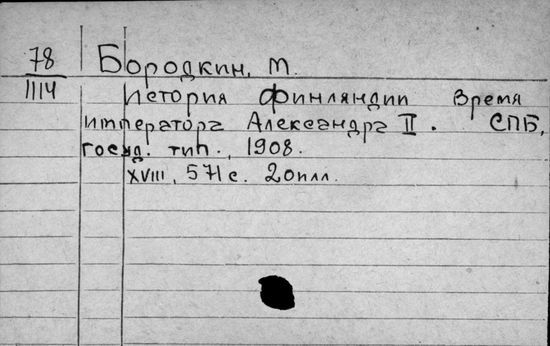 78 Бородкин, М.
1114 История Финляндии Время
императора Александра II. СПБ,
госуд. тип., 1908.
XVIII, 571 с. 20 илл.